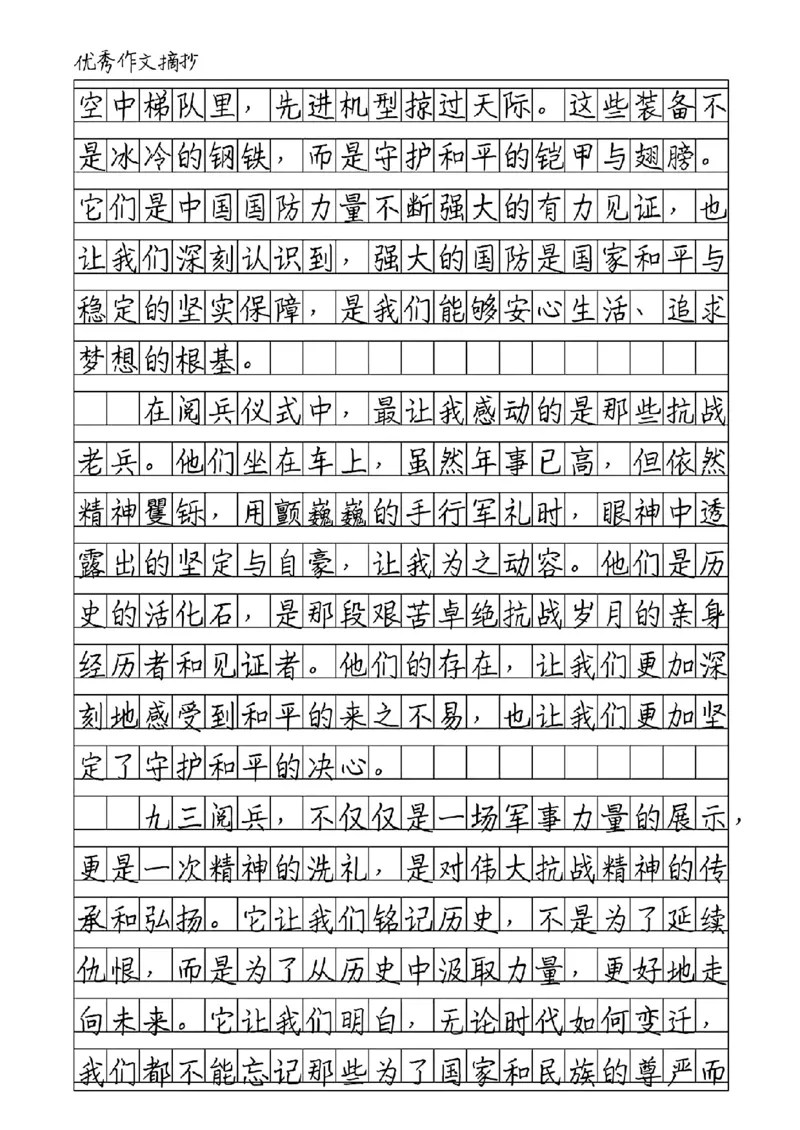 优秀作文摘抄
空中梯队里，先进机型掠过天际。这些装备不
是冰冷的钢铁，而是守护和平的铠甲与翅膀。
它们是中国国防力量不断强大的有力见证，也
让我们深刻认识到，强大的国防是国家和平与
稳定的坚实保障，是我们能够安心生活、追求
梦想的根基。
在阅兵仪式中，最让我感动的是那些抗战
老兵。他们坐在车上，虽然年事已高，但依然
精神矍铄，用颤巍巍的手行军礼时，眼神中透
露出的坚定与自豪，让我为之动容。他们是历
史的活化石，是那段艰苦卓绝抗战岁月的亲身
经历者和见证者。他们的存在，让我们更加深
刻地感受到和平的来之不易，也让我们更加坚
定了守护和平的决心。
九三阅兵，不仅仅是一场军事力量的展示，
更是一次精神的洗礼，是对伟大抗战精神的传
承和弘扬。它让我们铭记历史，不是为了延续
仇恨，而是为了从历史中汲取力量，更好地走
向未来。它让我们明白，无论时代如何变迁，
我们都不能忘记那些为了国家和民族的尊严而